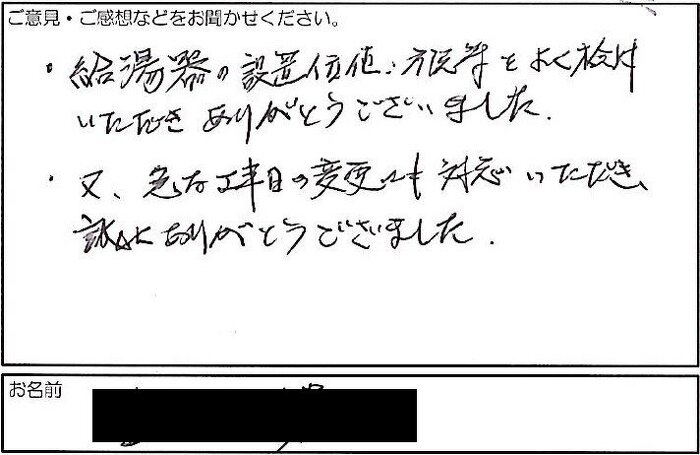 ご意見・ご感想などをお聞かせください。
・給湯器の設置位値、方法等をよく検討
いただきありがとうございました。
・又、急な工事日の変更にも対応いただき、
誠にありがとうございました。
お名前